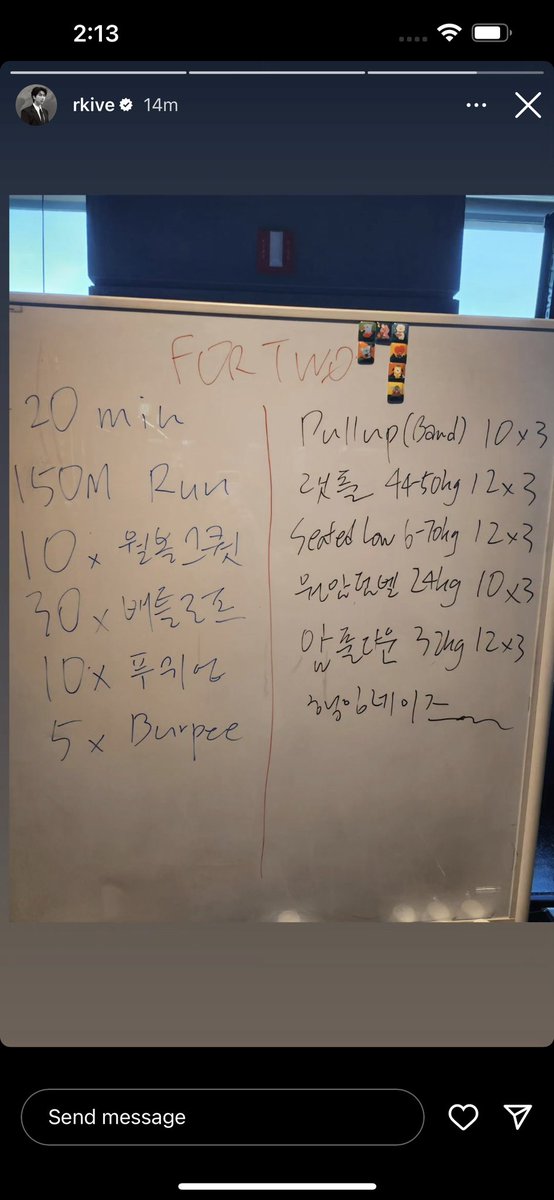 2:13
rkive 14m
FOR TWO
20 min
150M Run
10 x 월볼스쿼트
30 x 배틀로프
10 x 푸쉬업
5 x Burpee
Pull up (Band) 10 x 3
랫풀 44-50kg 12 x 3
Seated Low 6-70kg 12 x 3
원암덤벨 24kg 10 x 3
암풀다운 32kg 12 x 3
행잉레이즈
Send message